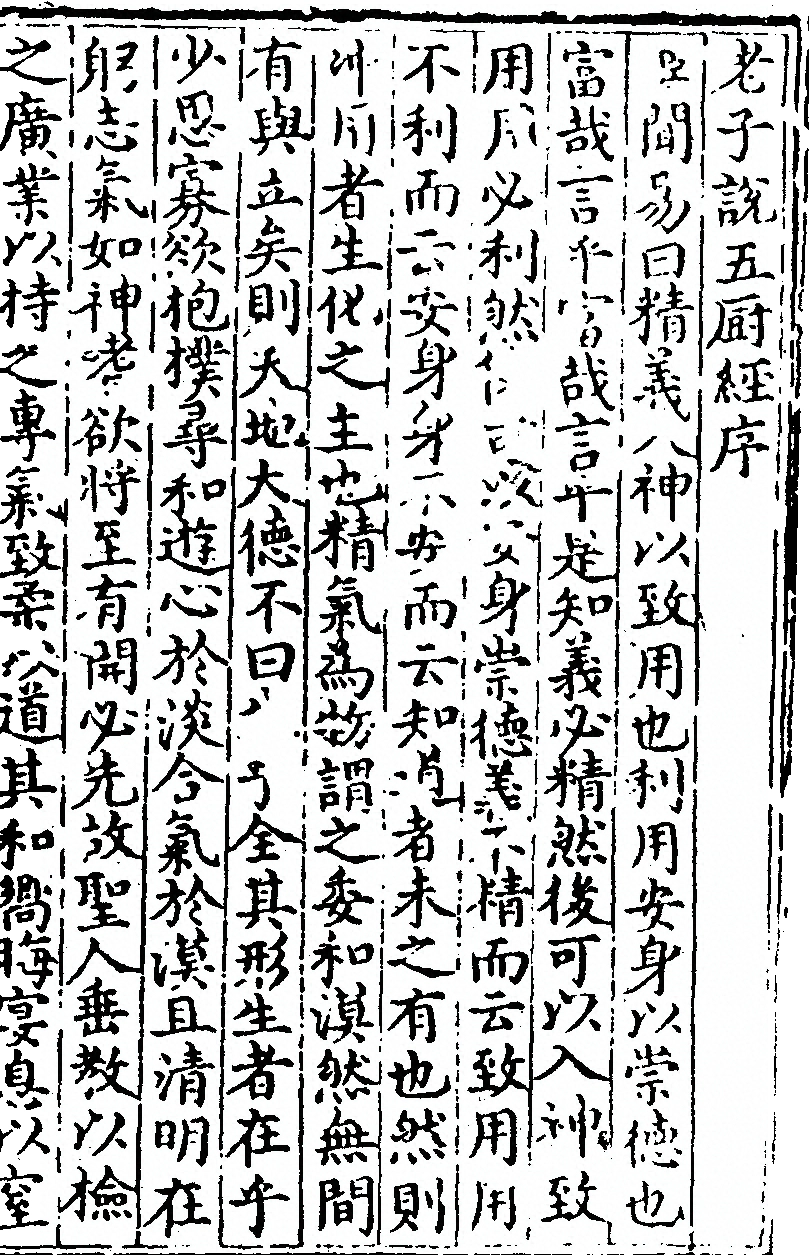 老子說五厨經序
臣聞易曰精義入神以致用也利用安身以崇德也
富哉言乎富哉言乎是知義必精然後可以入神致
用用必利然後可以安身崇德義不精而云致用用
不利而云安身身不安而云知道者未之有也然則
用者生化之主也精氣為物謂之委和漠然無間
有與立矣則天地大德不曰乎全其形生者在乎
少思寡欲抱樸尋和遊心於淡合氣於漠且清明在
躬志氣如神嗜欲將至有開必先故聖人垂教以檢
之廣業以持之專氣致柔以道其和嚮晦宴息以窒